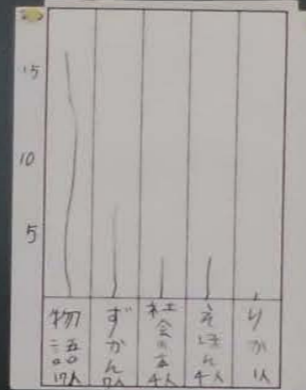 15
10
5
物語 17人
ずかん 7人
社会の本 4人
えほん 4人
りか 1人